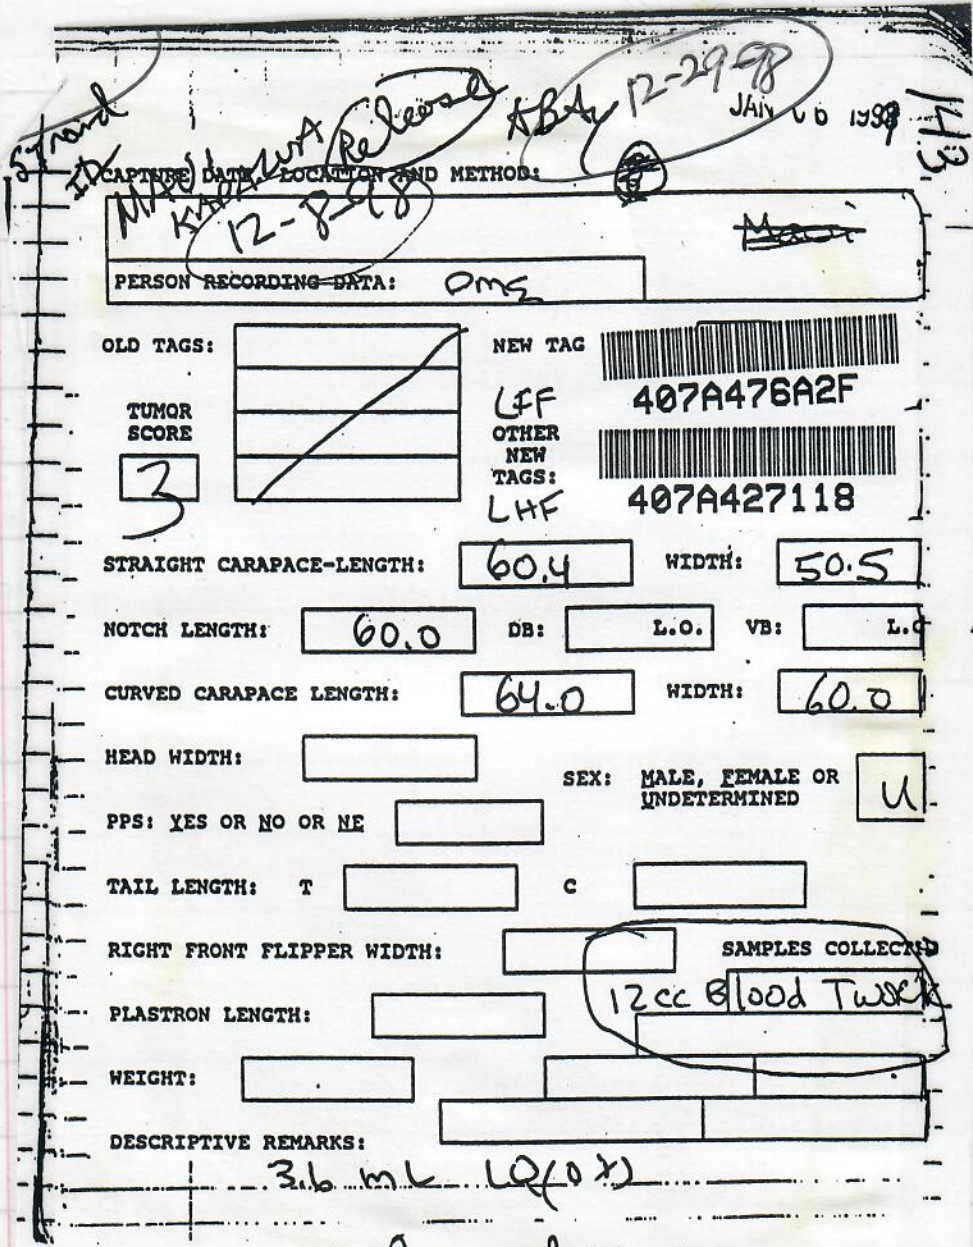 Strand
ID
Release
KBAy
12-29-98
JAN 06 1999
143
CAPTURE DATE, LOCATION AND METHOD:
MAUI
KAPALUA
12-8-98
Maui
PERSON RECORDING DATA: DME
OLD TAGS:
NEW TAG
407A476A2F
LFF
TUMOR
SCORE
3
OTHER
NEW
TAGS:
407A427118
LHF
STRAIGHT CARAPACE-LENGTH: 60.4 WIDTH: 50.5
NOTCH LENGTH: 60.0 DB: L.O. VB: L.O
CURVED CARAPACE LENGTH: 64.0 WIDTH: 60.0
HEAD WIDTH:
SEX: MALE, FEMALE OR
UNDETERMINED
U
PPS: YES OR NO OR NE
TAIL LENGTH: T C
RIGHT FRONT FLIPPER WIDTH: SAMPLES COLLECTED
12cc Blood TWork
PLASTRON LENGTH:
WEIGHT:
DESCRIPTIVE REMARKS:
3.6 mL LQ(OX)